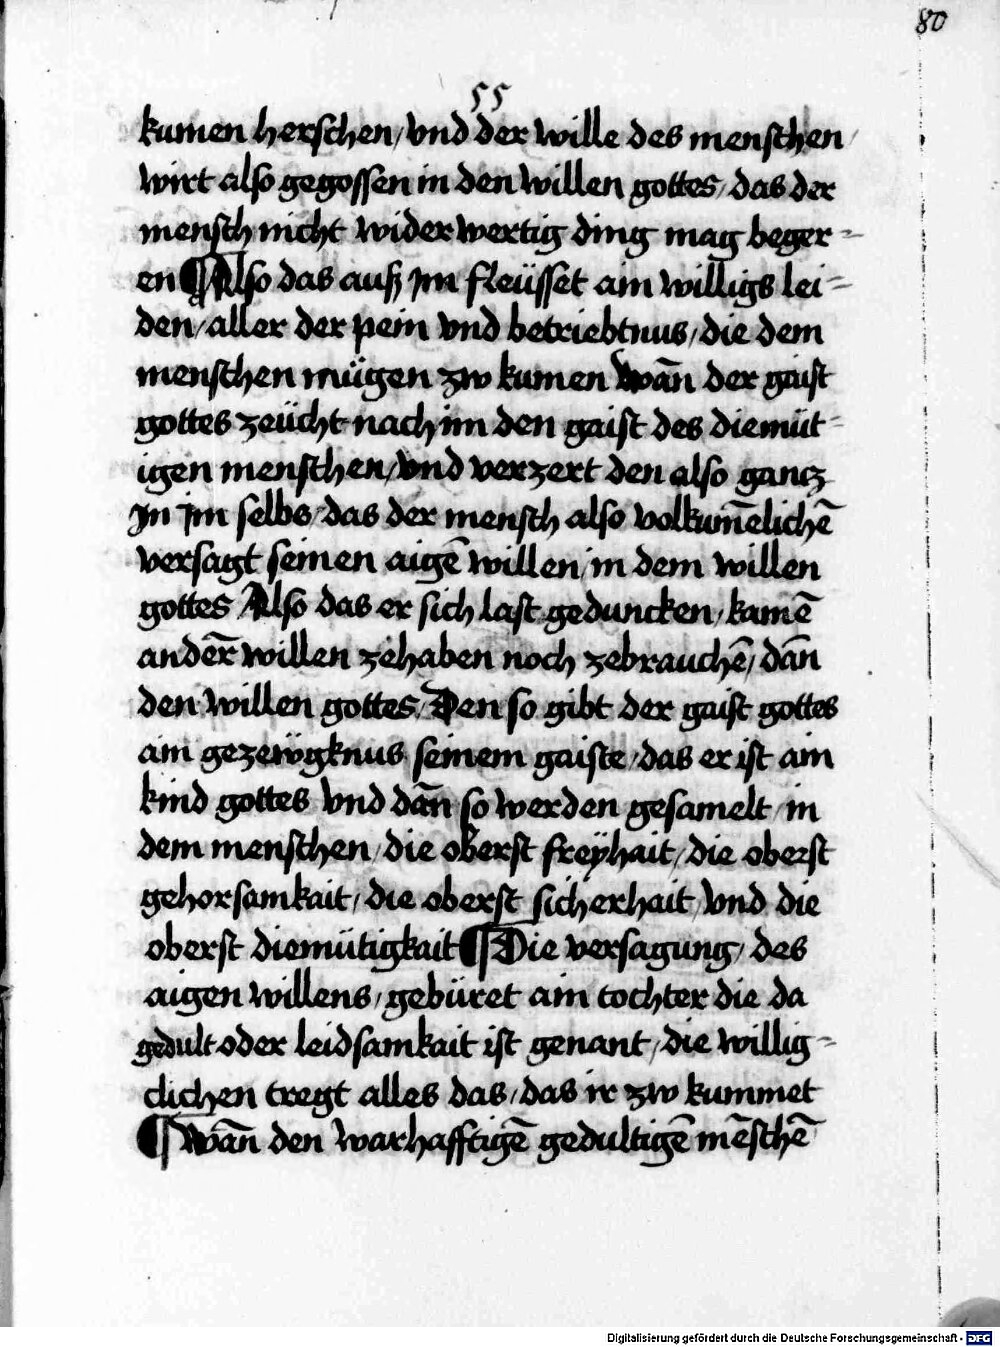 80
55
kumen herschen / vnd der wille des menschen /
wirt also gegossen in den willen gottes / das der
mensch nicht widerwertig ding mag beger=
en ¶ Also das auß jm fleüsset ain willigs lei=
den / aller der pein vnd betriebtnus / die dem
menschen mügen zw kumen Wān der gaist
gottes zeücht nach im den gaist des diemüt=
igen menschen / vnd verzert den also gantz
jn jm selbs / das der mensch also volkum̄elichē
versagt seinen aigē willen / in dem willen
gottes Also das er sich last geduncken / kamē
anderē willen zehaben noch zebrauchē / dān
den willen gottes / Den so gibt der gaist gottes
ain gezewgknus seinem gaiste / das er ist ain
kind gottes vnd dān so werden gesamelt / in
dem menschen / die oberst freÿhait / die oberst
gehorsamkait / die oberst sicherhait / vnd die
oberst diemütigkait ¶ Die versagung / des
aigen willens / gebüret ain tochter die da
gedult oder leidsamkait ist genant / die willig=
clichen tregt alles das / das ir zw kummet
¶ Wān den warhafftigē gedultigē mēschē
Digitalisierung gefördert durch die Deutsche Forschungsgemeinschaft - DFG